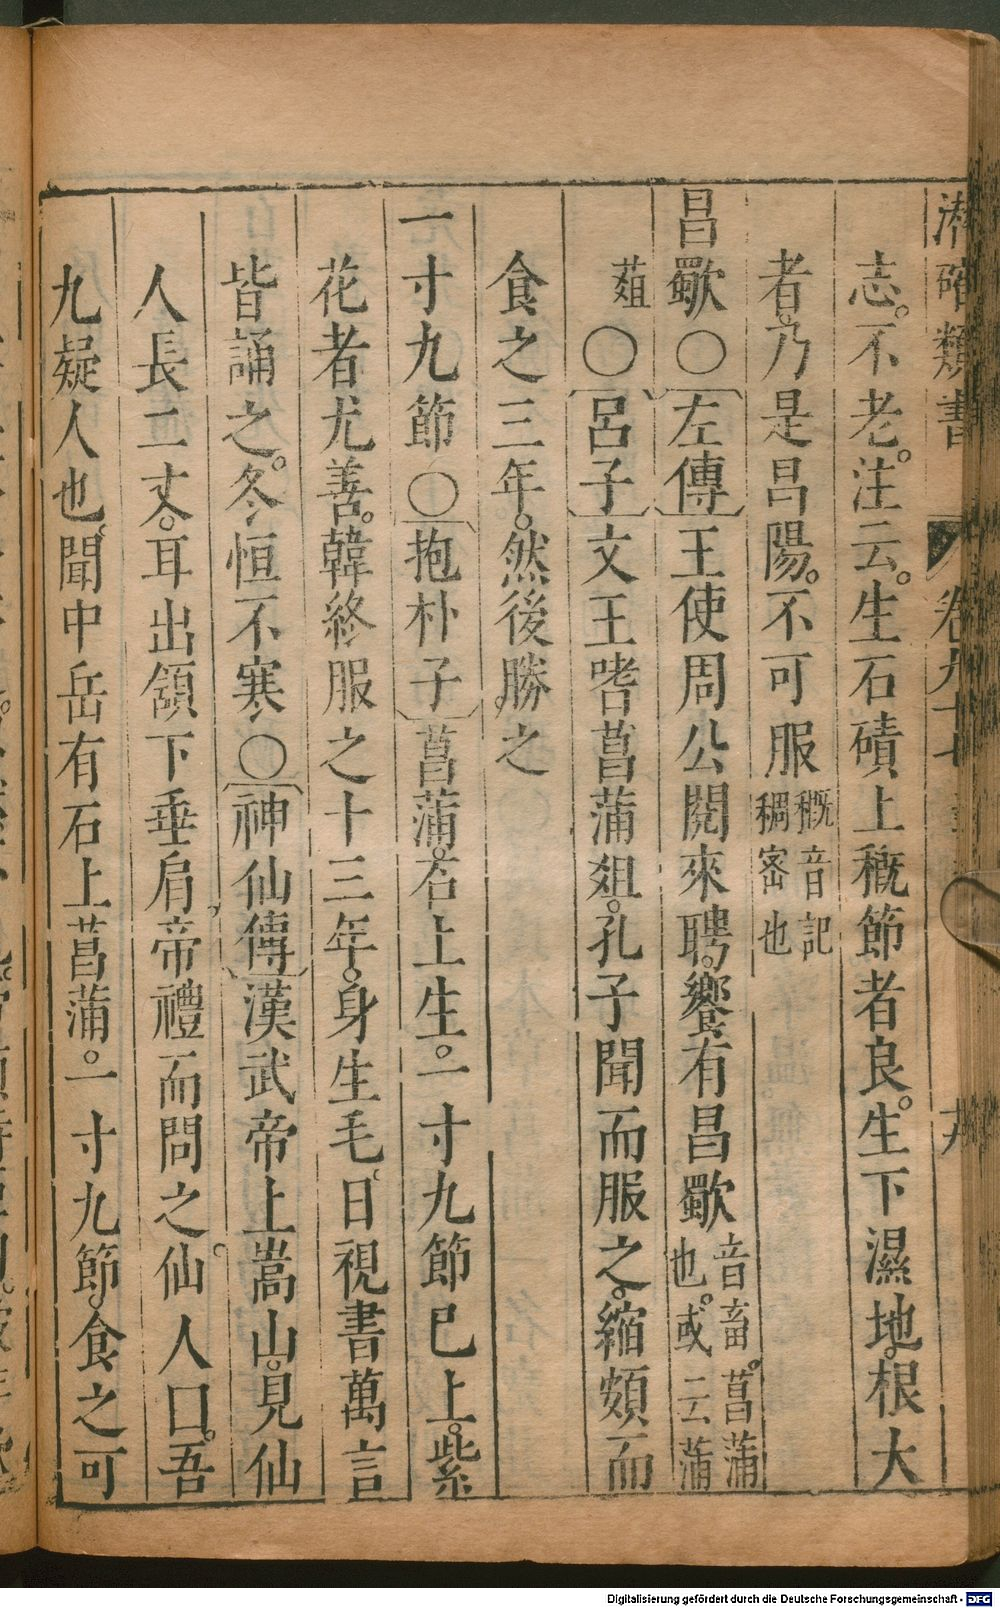 潛確類書 卷九十七 
志。不老。注云。生石磧上穊節者良。生下濕地。根大
者。乃是昌陽。不可服穊音記稠宻也
昌歜〇左傳王使周公閱來聘。饗有昌歜音畜。菖蒲也。或云蒲
葅〇呂子文王嗜菖蒲爼。孔子聞而服之。縮頞而
食之三年。然後勝之
一寸九節〇抱朴子菖蒲。石上生。一寸九節已上。紫
花者尤善。韓終服之十三年。身生毛。日視書萬言
皆誦之。冬恒不寒〇神仙傳漢武帝上嵩山。見仙
人長二丈。耳出頷下垂肩。帝禮而問之。仙人曰。吾
九疑人也。聞中岳有石上菖蒲。一寸九節。食之可
Digitalisierung gefördert durch die Deutsche Forschungsgemeinschaft - DFG